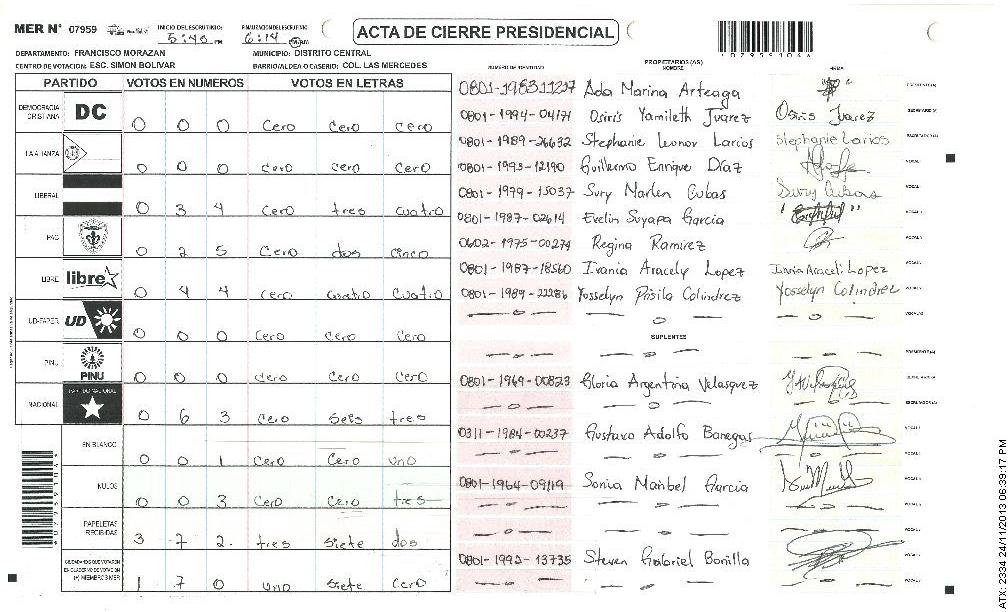 MER N° 07959
INICIO DEL ESCRUTINIO: 5:48 PM
FINALIZACION DEL ESCRUTINIO: 6:14
ACTA DE CIERRE PRESIDENCIAL
DEPARTAMENTO: FRANCISCO MORAZAN
MUNICIPIO: DISTRITO CENTRAL
CENTRO DE VOTACION: ESC. SIMON BOLIVAR
BARRIO/ALDEA O CASERIO: COL. LAS MERCEDES
PARTIDO VOTOS EN NUMEROS VOTOS EN LETRAS
DEMOCRACIA CRISTIANA DC 0 0 0 Cero Cero cero
LA ALIANZA 0 0 0 Cero Cero Cero
LIBERAL 0 3 4 Cero tres cuatro
PAC 0 2 5 Cero dos cinco
LIBRE libre 0 4 4 cero cuatro cuatro
UD-FAPER UD 0 0 0 Cero Cero Cero
PINU PINU 0 0 0 Cero Cero Cero
NACIONAL 0 6 3 Cero seis tres
EN BLANCO 0 0 1 Cero Cero uno
NULOS 0 0 3 Cero Cero tres
PAPELETAS RECIBIDAS 3 7 2 tres siete dos
CIUDADANOS QUE VOTARON EN CUADERNO DE VOTACION (+) MIEMBROS MER 1 7 0 uno siete cero
NUMERO DE IDENTIDAD
PROPIETARIOS (AS)
NOMBRE
FIRMA
0801-198311217 Ada Marina Arteaga PRESIDENTE(A)
0801-1994-04171 Osiris Yamileth Juarez Osiris Juarez SECRETARIO(A)
0801-1989-26632 Stephanie Leonor Larios Stephanie Larios ESCRUTADOR(A)
0801-1993-12190 Guillermo Enrique Díaz
0801-1979-15037 Sury Marlen Cubas Sury Cubas
0801-1987-02614 Evelin Suyapa Garcia
0602-1975-00274 Regina Ramirez
0801-1987-18560 Irania Aracely Lopez Irania Araceli Lopez
0801-1989-22286 Yosselyn Prisila Colindrez Yosselyn Colindrez
SUPLENTES
PRESIDENTE(A)
0801-1969-00823 Gloria Argentina Velasquez
ESCRUTADOR(A)
0311-1984-00237 Gustavo Adolfo Banegas
0801-1964-09119 Sonia Maribel Garcia
0801-1992-13735 Steven Gabriel Bonilla
07959104
ATX: 2334 24/11/2013 06:39:17 PM